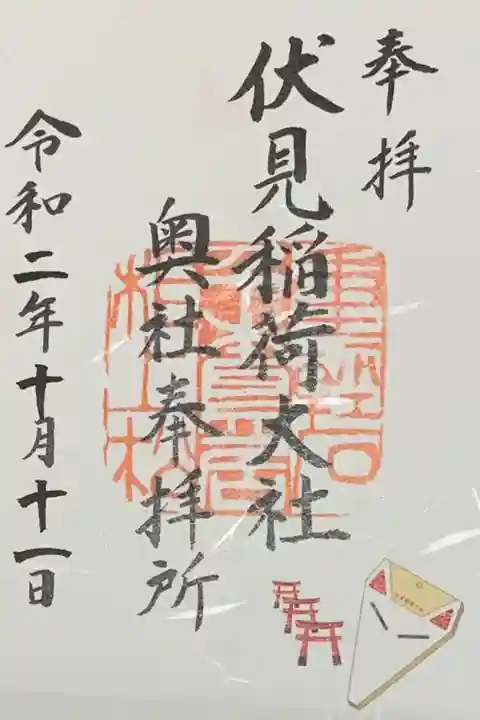 奉拝
伏見稲荷大社
奥社奉拝所
令和二年十月十一日